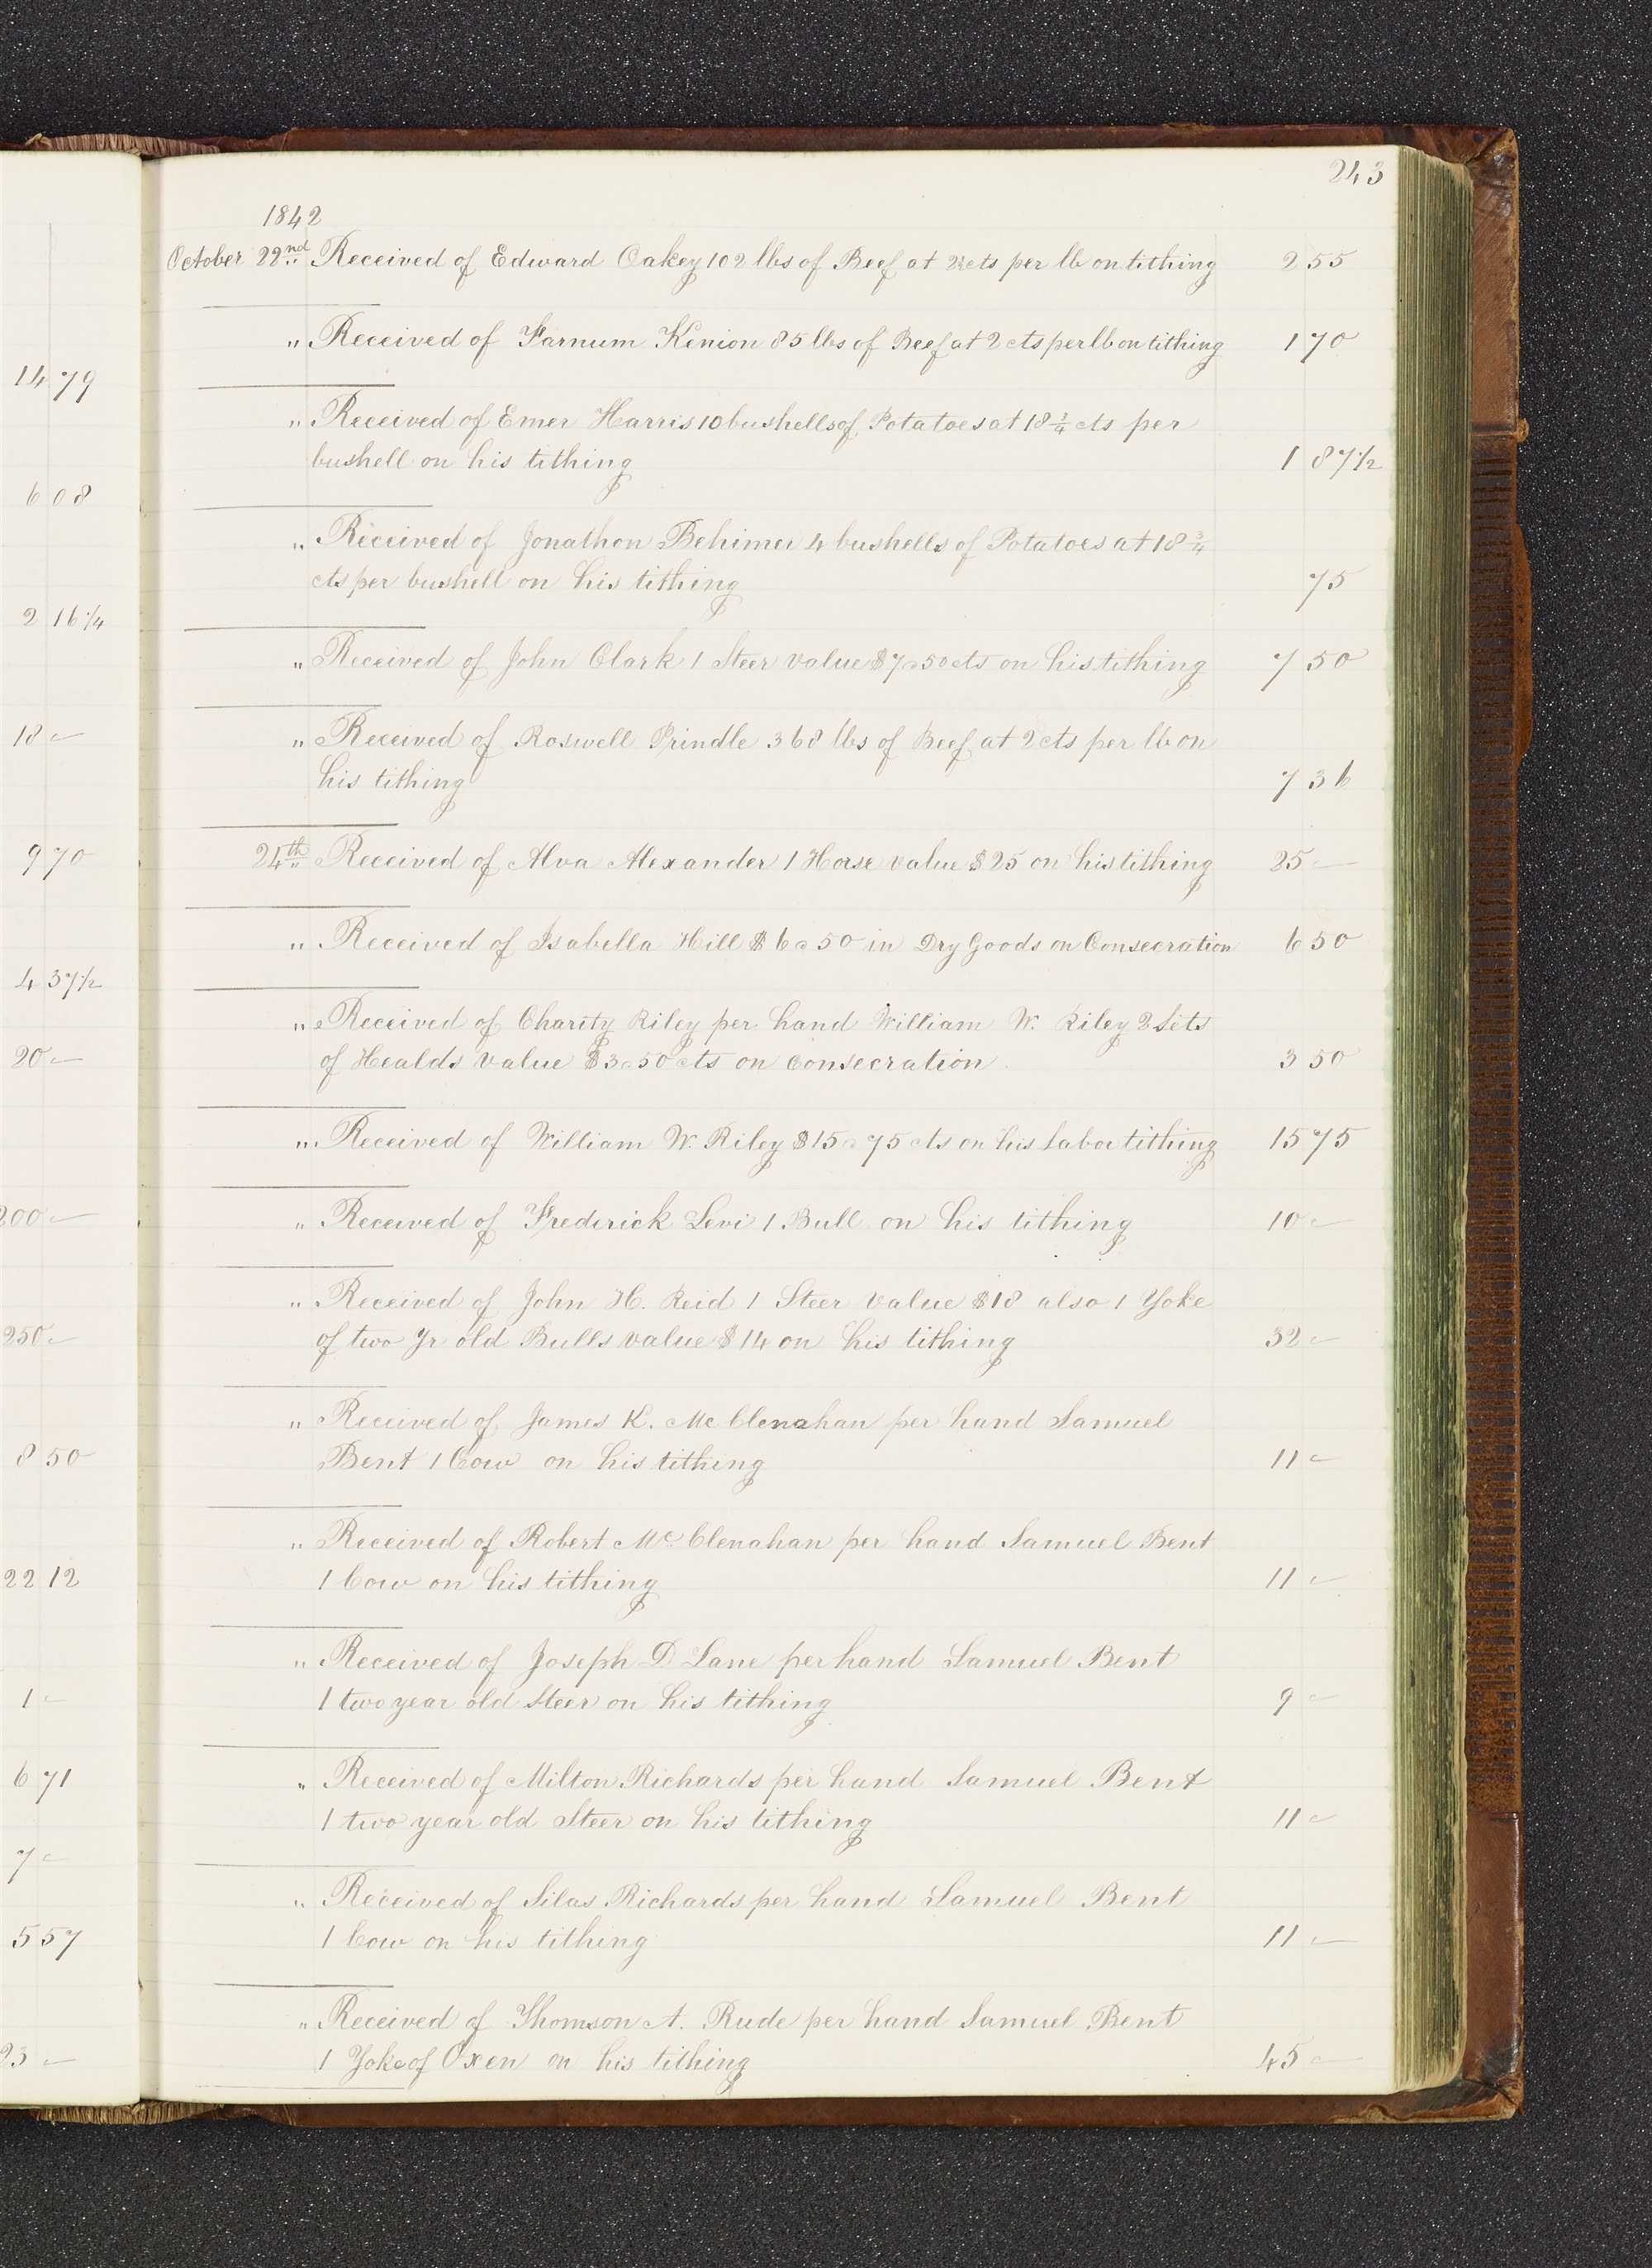 243
1842
October 22nd Received of Edward Oakey 102 lbs of Beef at 2½cts per lb on tithing 2 55
" Received of Farnum Kenion 85 lbs of Beef at 2 cts per lb on tithing 1 70
" Received of Emer Harris 10 bushells of Potatoes at 18 3/4 cts per
bushell on his tithing 1 87 1/2
" Received of Jonathon Behimer 4 bushells of Potatoes at 18 3/4
cts per bushell on his tithing 75
" Received of John Clark 1 Steer value $7 = 50 cts on his tithing 7 50
" Received of Roswell Prindle 368 lbs of Beef at 2 cts per lb on
his tithing 7 36
24th Received of Alva Alexander 1 Horse value $25 on his tithing 25 -
" Received of Isabella Hill $6 = 50 in Dry Goods on Consecration 6 50
" Received of Charity Riley per hand William W. Riley 2 Sets
of Healds value $3 = 50 cts on Consecration 3 50
" Received of William W. Riley $15 = 75 cts on his labor tithing 15 75
" Received of Frederick Levi 1 Bull on his tithing 10 -
" Received of John H. Reid 1 Steer value $18 also 1 Yoke
of two Yr old Bulls value $14 on his tithing 32 -
" Received of James K. McClenahan per hand Samuel
Bent 1 Cow on his tithing 11 -
" Received of Robert McClenahan per hand Samuel Bent
1 Cow on his tithing 11 -
" Received of Joseph D Lane per hand Samuel Bent
1 two year old Steer on his tithing 9 -
" Received of Milton Richards per hand Samuel Bent
1 two year old Steer on his tithing 11 -
" Received of Silas Richards per hand Samuel Bent
1 Cow on his tithing 11 -
" Received of Thomson A. Rude per hand Samuel Bent
1 Yoke of Oxen on his tithing 45 -
14 79
6 08
2 16 1/4
18 -
9 70
4 37 1/2
20 -
200 -
250 -
8 50
22 12
1 -
6 71
7 -
5 57
23 -